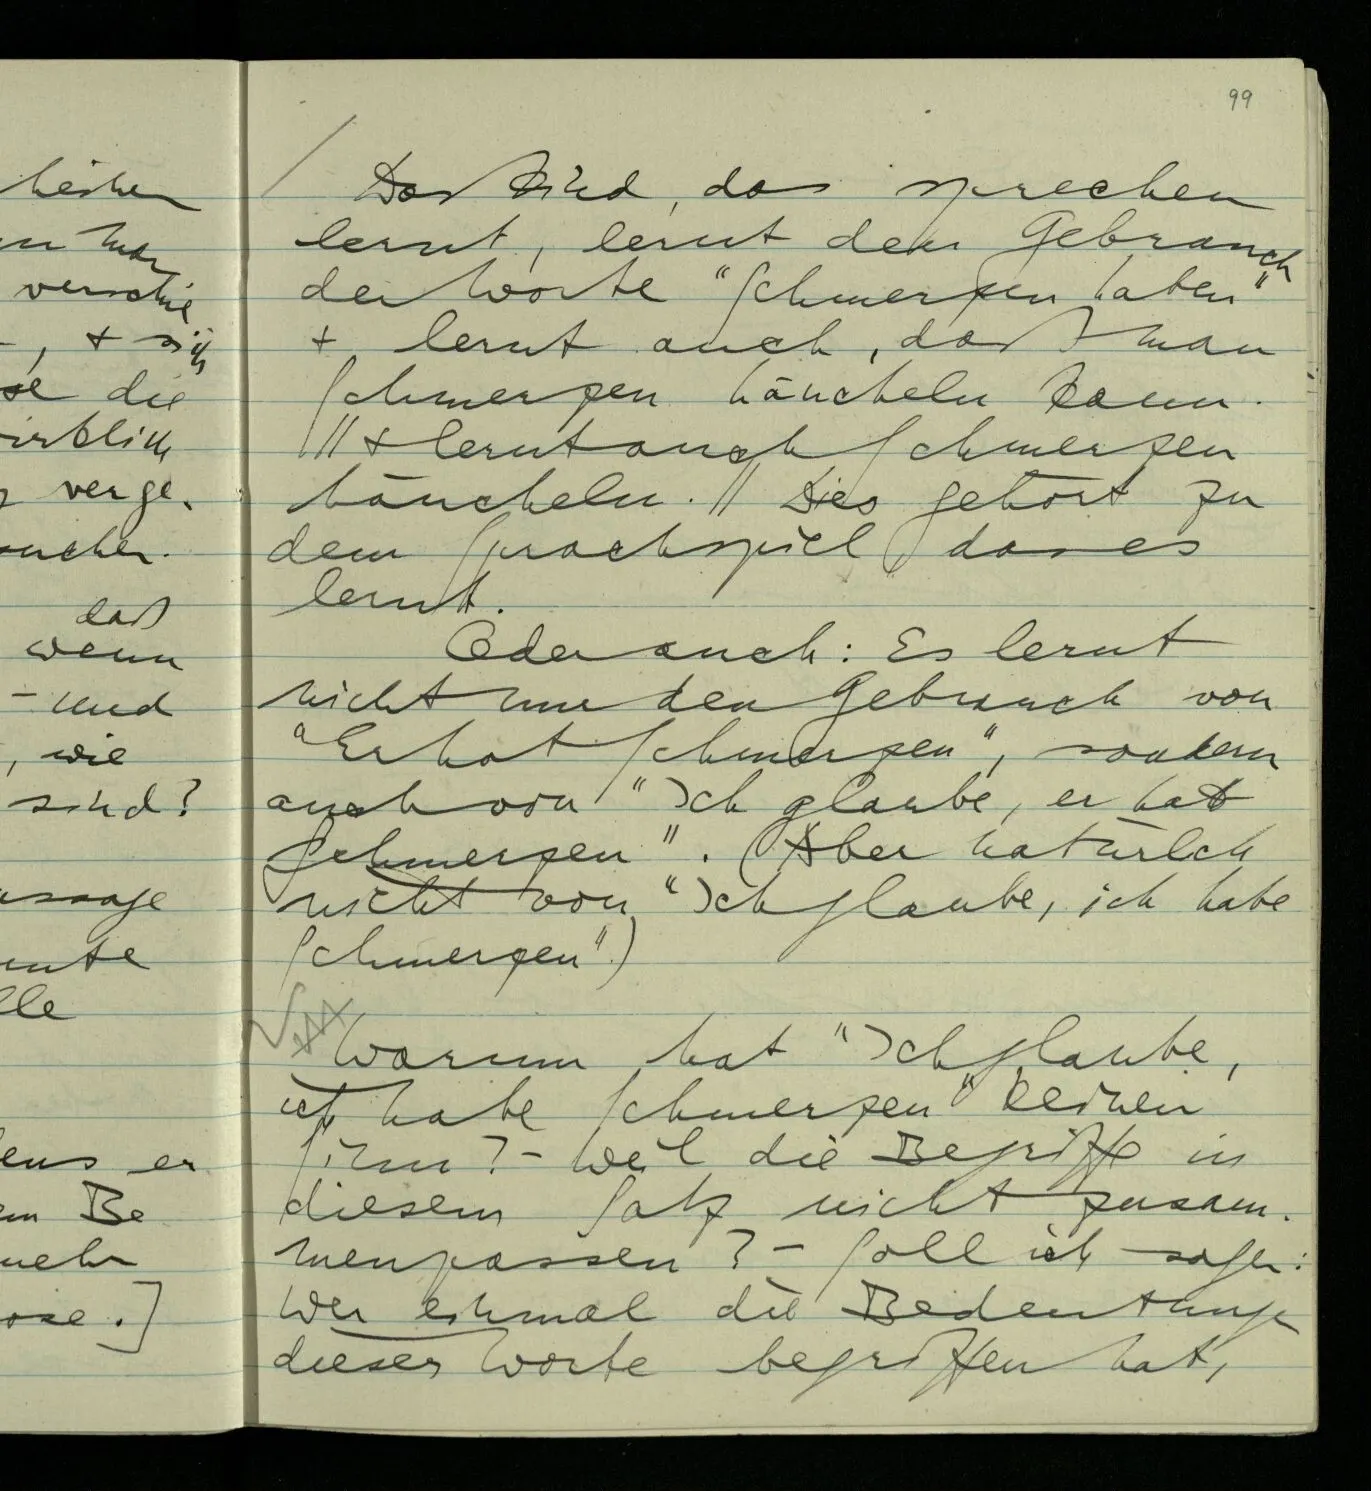 heiten
man
verschie
-, + sich
die
wirklich
verge-
daß
wenn
- und
, wie
sind?
Aussage
elle
er
Be
mehr
99
/ Das Kind, das sprechen
lernt, lernt den Gebrauch
der Worte "Schmerzen haben"
+ lernt auch, daß man
Schmerzen häucheln kann.
// + lernt auch Schmerzen
häucheln. // Dies gehört zu
dem Sprachspiel das es
lernt.
Oder auch: Es lernt
nicht nur den Gebrauch von
"Er hat Schmerzen", sondern
auch von "Ich glaube, er hat
Schmerzen". (Aber natürlich
nicht von "Ich glaube, ich habe
Schmerzen".)
Warum hat "Ich glaube,
ich habe Schmerzen" keinen
Sinn? - Weil die Begriffe in
diesem Satz nicht zusam-
menpassen? - Soll ich sagen:
Wer einmal die Bedeutung
dieser Worte begriffen hat,